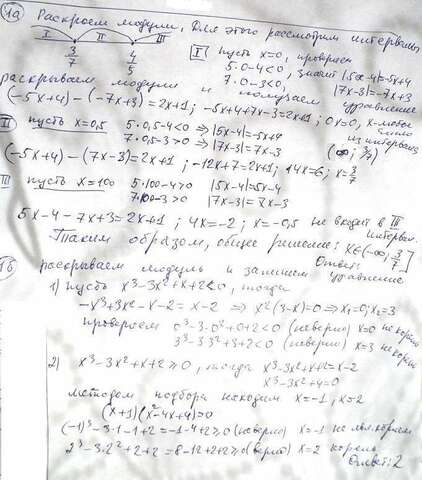 1а) Раскроем модули, для этого рассмотрим интервалы
I II III
3/7 4/5
I пусть x=0, проверяем
5·0-4<0, значит |5x-4|=-5x+4
7·0-3<0, |7x-3|=-7x+3
раскрываем модули и получаем уравнение
(-5x+4)-(-7x+3)=2x+1; -5x+4+7x-3=2x+1; 0x=0, x-любое
из интервала
(∞; 3/7)
II пусть x=0,5 5·0,5-4<0 ⇒ |5x-4|=-5x+4
7·0,5-3>0 ⇒ |7x-3|=7x-3
(-5x+4)-(7x-3)=2x+1; -12x+7=2x+1; 14x=6; x=3/7
III пусть x=100 5·100-4>0 |5x-4|=5x-4
7·100-3>0 |7x-3|=7x-3
5x-4-7x+3=2x+1; 4x=-2; x=-0,5 не входит в III
интервал.
Таким образом, общее решение:
Ответ: x∈(-∞; 3/7]
1б раскрываем модуль и запишем уравнение
1) пусть x³-3x²+x+2<0, тогда
-x³+3x²-x-2=x-2 ⇒ x²(3-x)=0 ⇒ x₁=0; x₂=3
проверяем 0³-3·0²+0+2<0 (неверно) x=0 не корень
3³-3·3²+3+2<0 (неверно) x=3 не корень
2) x³-3x²+x+2≥0, тогда x³-3x²+x+2=x-2
x³-3x²+4=0
методом подбора находим x=-1; x=2
(x+1)(x²-4x+4)=0
(-1)³-3·1-1+2=-1-4+2≥0 (неверно) x=-1 не явл. корнем
2³-3·2²+2+2=8-12+2+2≥0 (верно) x=2 корень
Ответ: 2